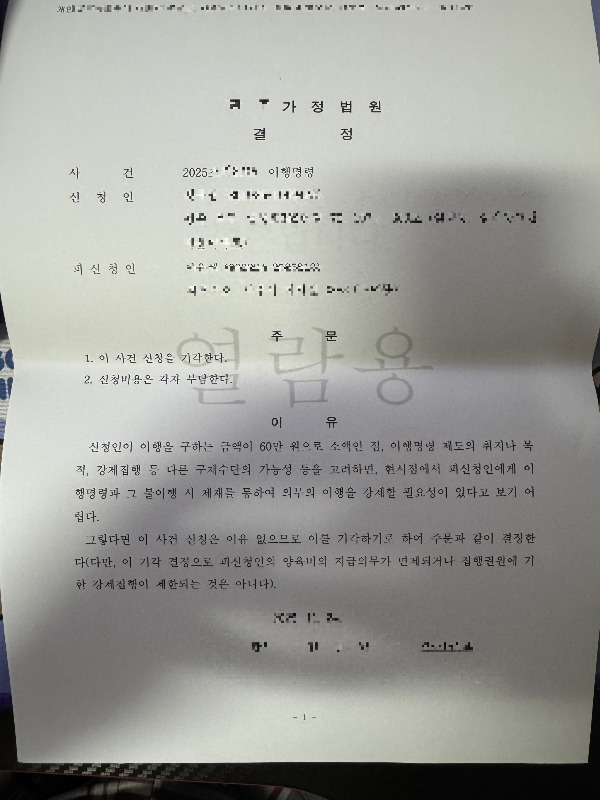 가 정 법 원
결 정
사 건 2025 이행명령
신 청 인
피 신 청 인
열람용
주 문
1. 이 사건 신청을 기각한다.
2. 신청비용은 각자 부담한다.
이 유
신청인이 이행을 구하는 금액이 60만 원으로 소액인 점, 이행명령 제도의 취지나 목
적, 강제집행 등 다른 구제수단의 가능성 등을 고려하면, 현시점에서 피신청인에게 이
행명령과 그 불이행 시 제재를 통하여 의무의 이행을 강제할 필요성이 있다고 보기 어
렵다.
그렇다면 이 사건 신청은 이유 없으므로 이를 기각하기로 하여 주문과 같이 결정한
다(다만, 이 기각 결정으로 피신청인의 양육비의 지급의무가 면제되거나 집행권원에 기
한 강제집행이 제한되는 것은 아니다).
- 1 -